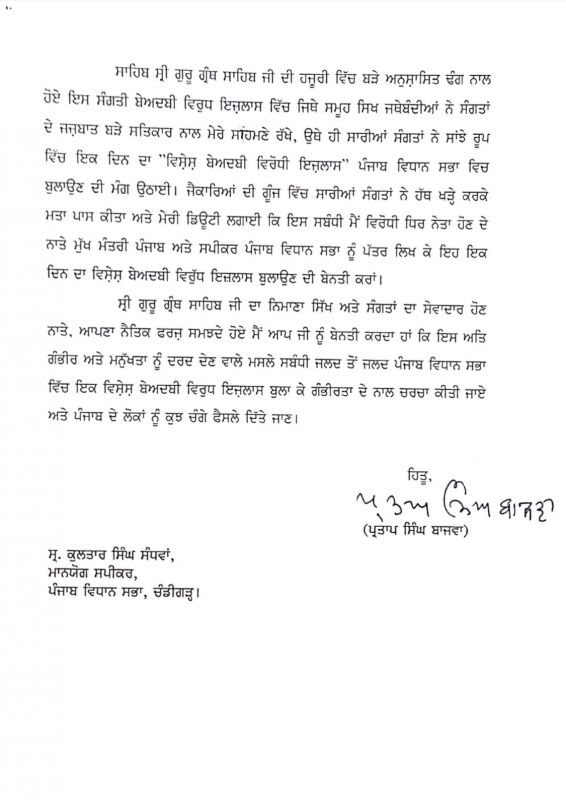 ਸਾਹਿਬ ਸ੍ਰੀ ਗੁਰੂ ਗ੍ਰੰਥ ਸਾਹਿਬ ਜੀ ਦੀ ਹਜ਼ੂਰੀ ਵਿੱਚ ਬੜੇ ਅਨੁਸ਼ਾਸਿਤ ਢੰਗ ਨਾਲ
ਹੋਏ ਇਸ ਸੰਗਤੀ ਬੇਅਦਬੀ ਵਿਰੁਧ ਇਜ਼ਲਾਸ ਵਿੱਚ ਜਿਥੇ ਸਮੂਹ ਸਿਖ ਜਥੇਬੰਦੀਆਂ ਨੇ ਸੰਗਤਾਂ
ਦੇ ਜਜ਼ਬਾਤ ਬੜੇ ਸਤਿਕਾਰ ਨਾਲ ਮੇਰੇ ਸਾਂਹਮਣੇ ਰੱਖੇ, ਉਥੇ ਹੀ ਸਾਰੀਆਂ ਸੰਗਤਾਂ ਨੇ ਸਾਂਝੇ ਰੂਪ
ਵਿੱਚ ਇਕ ਦਿਨ ਦਾ "ਵਿਸ਼ੇਸ਼ ਬੇਅਦਬੀ ਵਿਰੋਧੀ ਇਜ਼ਲਾਸ" ਪੰਜਾਬ ਵਿਧਾਨ ਸਭਾ ਵਿਚ
ਬੁਲਾਉਣ ਦੀ ਮੰਗ ਉਠਾਈ। ਜੈਕਾਰਿਆਂ ਦੀ ਗੂੰਜ ਵਿੱਚ ਸਾਰੀਆਂ ਸੰਗਤਾਂ ਨੇ ਹੱਥ ਖੜ੍ਹੇ ਕਰਕੇ
ਮਤਾ ਪਾਸ ਕੀਤਾ ਅਤੇ ਮੇਰੀ ਡਿਊਟੀ ਲਗਾਈ ਕਿ ਇਸ ਸਬੰਧੀ ਮੈਂ ਵਿਰੋਧੀ ਧਿਰ ਨੇਤਾ ਹੋਣ ਦੇ
ਨਾਤੇ ਮੁੱਖ ਮੰਤਰੀ ਪੰਜਾਬ ਅਤੇ ਸਪੀਕਰ ਪੰਜਾਬ ਵਿਧਾਨ ਸਭਾ ਨੂੰ ਪੱਤਰ ਲਿਖ ਕੇ ਇਹ ਇਕ
ਦਿਨ ਦਾ ਵਿਸ਼ੇਸ਼ ਬੇਅਦਬੀ ਵਿਰੁੱਧ ਇਜ਼ਲਾਸ ਬੁਲਾਉਣ ਦੀ ਬੇਨਤੀ ਕਰਾਂ।
ਸ੍ਰੀ ਗੁਰੂ ਗ੍ਰੰਥ ਸਾਹਿਬ ਜੀ ਦਾ ਨਿਮਾਣਾ ਸਿੱਖ ਅਤੇ ਸੰਗਤਾਂ ਦਾ ਸੇਵਾਦਾਰ ਹੋਣ
ਨਾਤੇ, ਆਪਣਾ ਨੈਤਿਕ ਫਰਜ਼ ਸਮਝਦੇ ਹੋਏ ਮੈਂ ਆਪ ਜੀ ਨੂੰ ਬੇਨਤੀ ਕਰਦਾ ਹਾਂ ਕਿ ਇਸ ਅਤਿ
ਗੰਭੀਰ ਅਤੇ ਮਨੁੱਖਤਾ ਨੂੰ ਦਰਦ ਦੇਣ ਵਾਲੇ ਮਸਲੇ ਸਬੰਧੀ ਜਲਦ ਤੋਂ ਜਲਦ ਪੰਜਾਬ ਵਿਧਾਨ ਸਭਾ
ਵਿੱਚ ਇਕ ਵਿਸ਼ੇਸ਼ ਬੇਅਦਬੀ ਵਿਰੁਧ ਇਜ਼ਲਾਸ ਬੁਲਾ ਕੇ ਗੰਭੀਰਤਾ ਦੇ ਨਾਲ ਚਰਚਾ ਕੀਤੀ ਜਾਏ
ਅਤੇ ਪੰਜਾਬ ਦੇ ਲੋਕਾਂ ਨੂੰ ਕੁਝ ਚੰਗੇ ਫੈਸਲੇ ਦਿੱਤੇ ਜਾਣ।
ਹਿਤੂ,
ਪ੍ਰਤਾਪ ਸਿੰਘ ਬਾਜਵਾ
(ਪ੍ਰਤਾਪ ਸਿੰਘ ਬਾਜਵਾ)
ਸ੍ਰ. ਕੁਲਤਾਰ ਸਿੰਘ ਸੰਧਵਾਂ,
ਮਾਨਯੋਗ ਸਪੀਕਰ,
ਪੰਜਾਬ ਵਿਧਾਨ ਸਭਾ, ਚੰਡੀਗੜ੍ਹ।